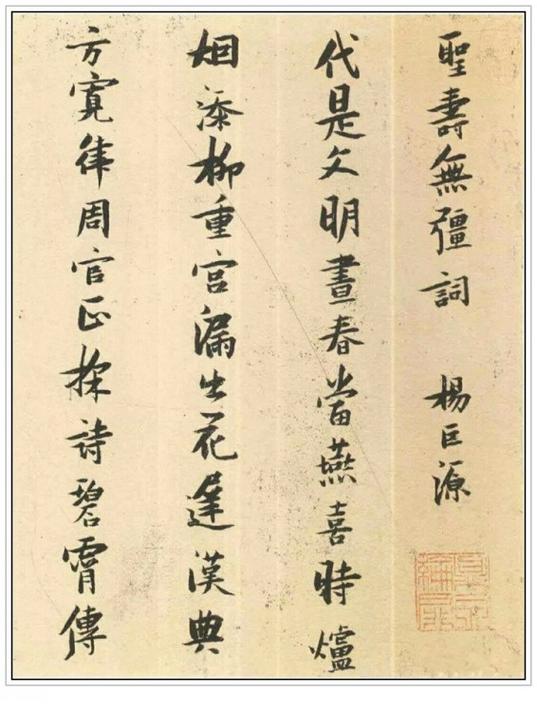 聖壽無彊詞 楊巨源
代是文明晝春當燕喜時爐
烟添柳重宮漏出花遲漢典
方寬律周官正採詩碧霄傳